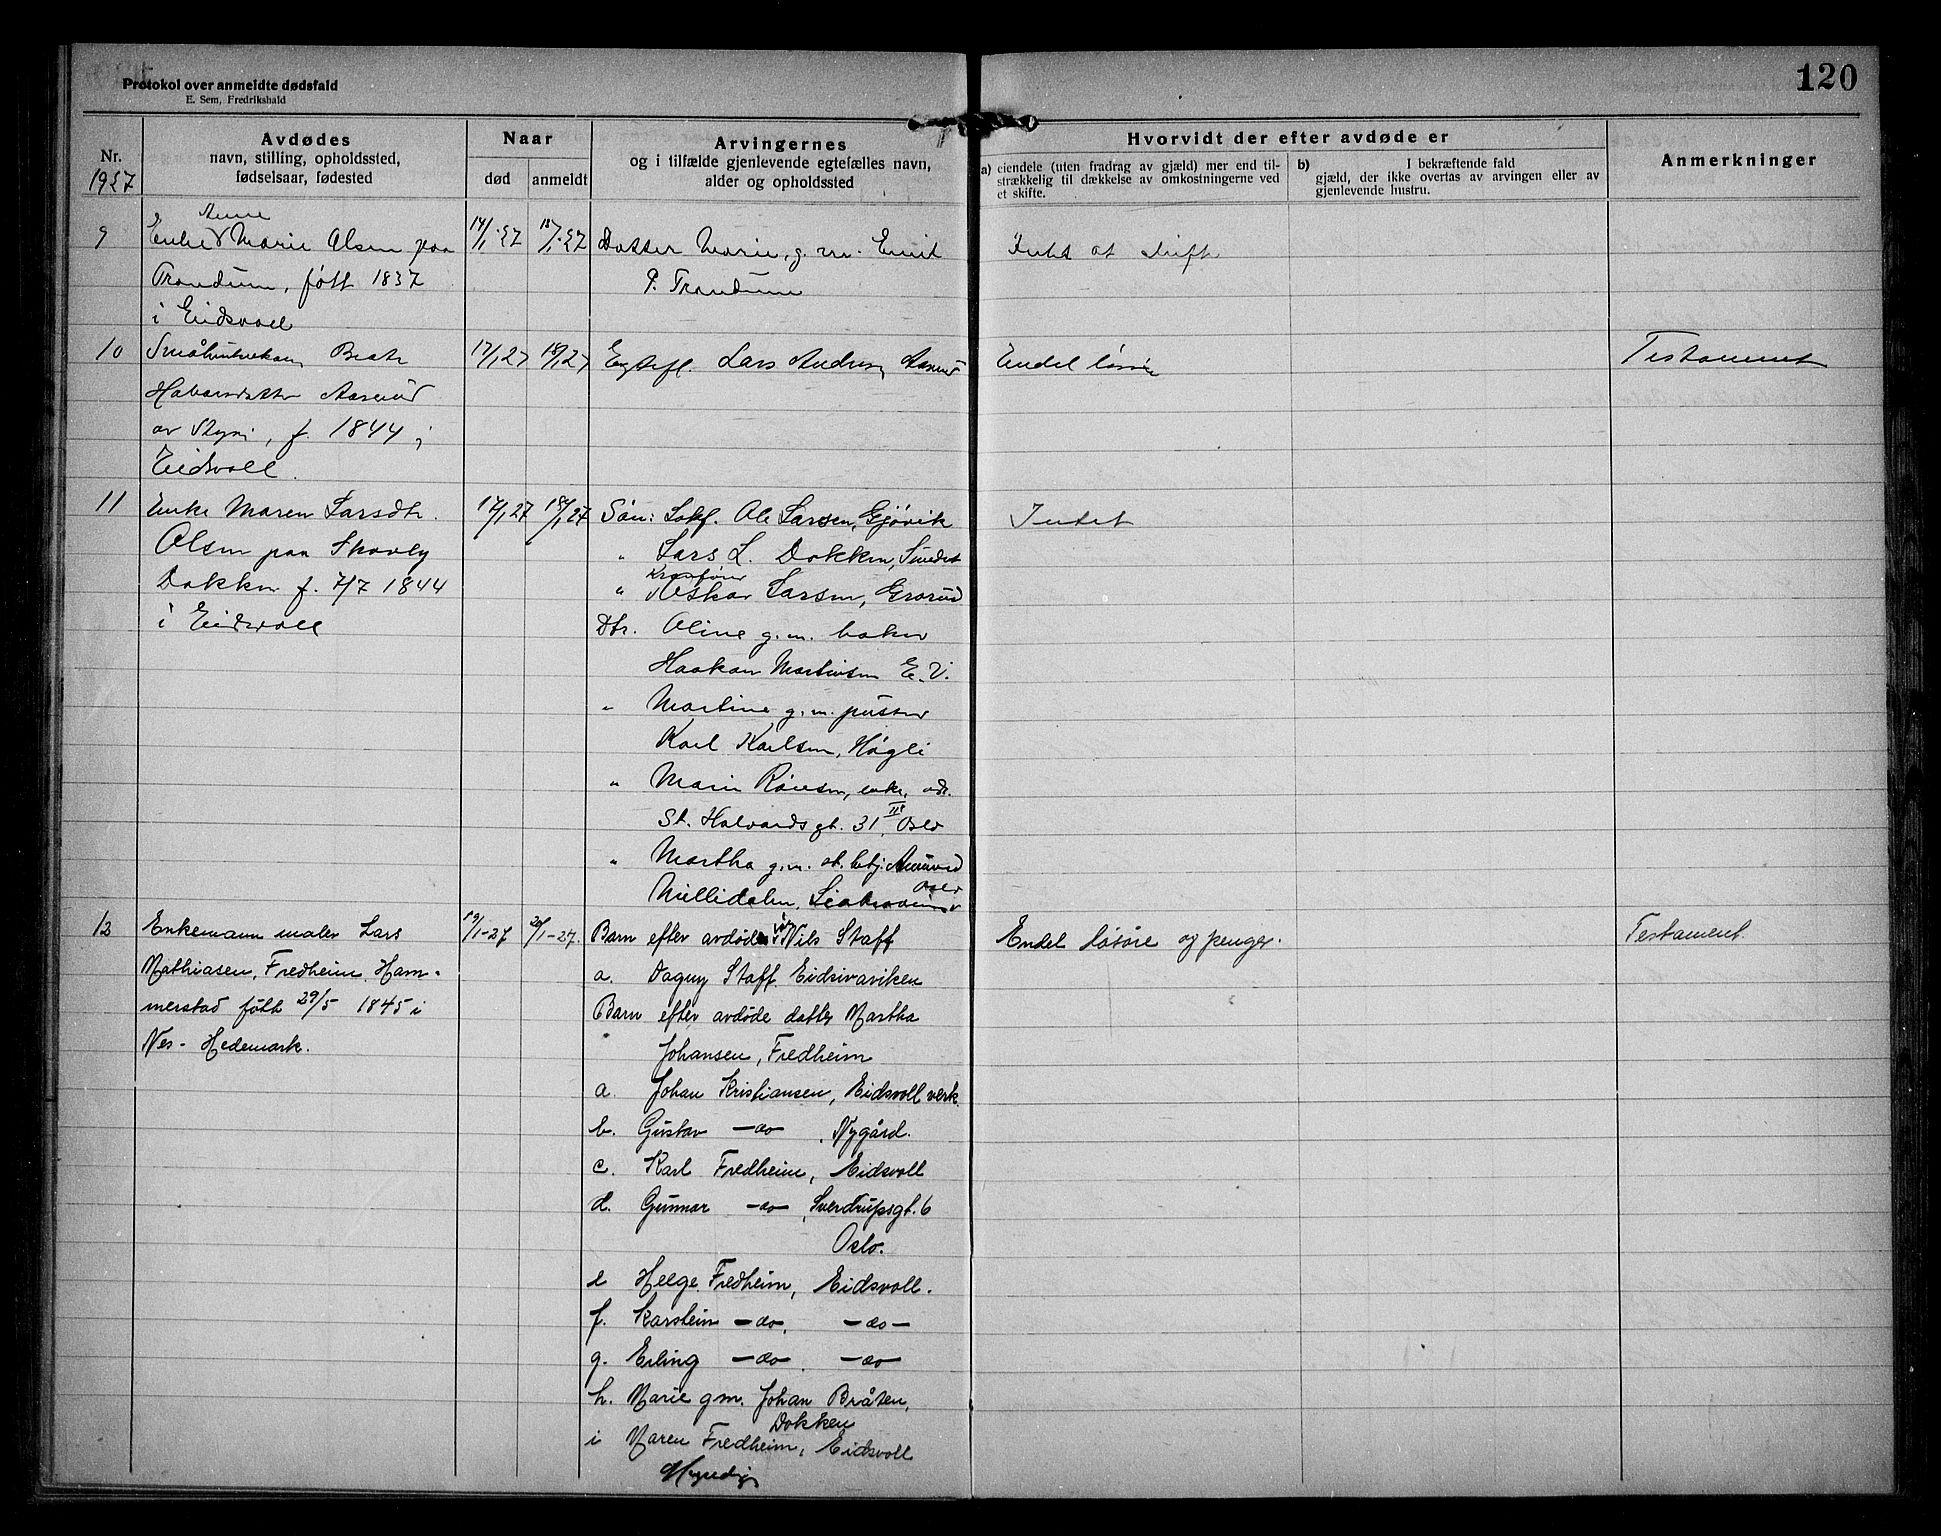 Protokol over anmeldte dødsfald
E. Sem, Fredrikshald
120
Nr.
1927
Avdødes
navn, stilling, opholdssted,
fødselsaar, fødested
Naar
død
anmeldt
Arvingernes
og i tilfælde gjenlevende egtefælles navn,
alder og opholdssted
Hvorvidt der efter avdøde er
a) eiendele (uten fradrag av gjæld) mer end til-
strækkelig til dækkelse av omkostningerne ved
et skifte.
b) I bekræftende fald
gjæld, der ikke overtas av arvingen eller av
gjenlevende hustru.
Anmerkninger
9
Anne
Enke Marie Olsen paa
Trandum, født 1837
i Eidsvoll
14/1-27
18/1-27
Datter Marie, g. m. Emil
P. Trandum
Intet at skifte
10
Småbrukerkone Beate
Haavardsdatter Aaserud
av Styri, f. 1844 i
Eidsvoll.
17/1 27
18/1 27
Egtefl. Lars Andersen Aaserud
Endel løsøre
Testament
11
Enke Maren Larsdtr.
Olsen paa Skovly
Dokken f. 7/7 1844
i Eidsvoll
17/1 27
18/1 27
Søn: Lokf. Ole Larsen, Gjøvik
" Lars L. Dokken, Sundet
" Oskar Larsen, Grorud
Dtr. Oline g. m. baker
Haakon Martinsen E. V.
" Martine g. m. pusser
Karl Karlsen, Høgli
" Marie Røisen, enke, adr.
St. Halvards gt. 31 II, Oslo
" Martha g. m. st. betj. Amund
Millidalen, Oslo
Intet
12
Enkemann maler Lars
Mathiasen, Fredheim, Ham-
merstad født 29/5 1845 i
Nes - Hedemark.
19/1-27
20/1-27.
Barn efter avdøde Nils Staff
a. Dagny Staff. Eidsivaviken
Barn efter avdøde datter Martha
Johansen, Fredheim
a. Johan Kristiansen, Eidsvoll verk.
b. Gustav -do- , Nygård.
c. Karl Fredheim, Eidsvoll
d. Gunnar -do- , Sverdrupsgt. 6
Oslo.
e Helge Fredheim, Eidsvoll.
f. Karstein -do-, -do-
g. Erling -do-, -do-
h. Marie gm. Johan Bråten,
Dokken
i Maren Fredheim, Eidsvoll
Myndig
Endel løsøre og penger.
Testament.